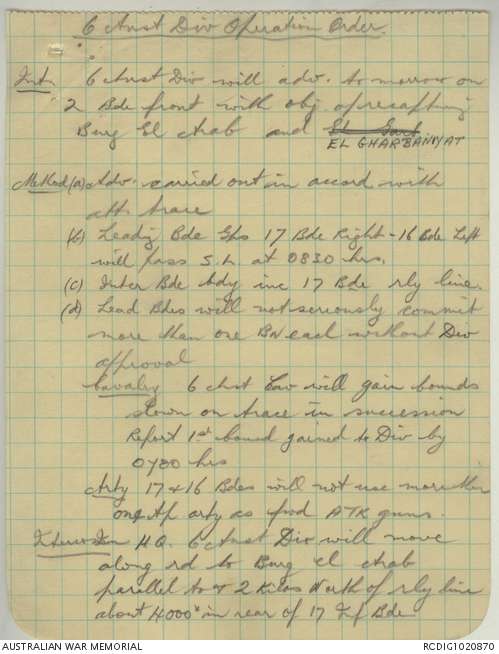 6 Aust Div Operation Order.
Intn 6 Aust Div will adv. to morrow on
2 Bde front with obj of recapturing
Burg El Arab and
EL GHARBANIYAT
Method (a) Adv. carried out in accord with
att. trace
(b) Leading Bde Gps 17 Bde Right - 16 Bde Left
will pass S.L. at 0830 hrs.
(c) Inter Bde bdy inc 17 Bde rly line.
(d) Lead Bdes will not seriously commit
more than one BN each without Div
approval
Cavalry 6 Aust Cav will gain bounds
shown on trace in succession
Report 1st bound gained to Div by
0730 hrs
Arty 17 & 16 Bdes will not use more than
one Tp arty as fwd ATK guns.
H.Q. 6 Aust Div will move
along rd to Burg El Arab
parallel to & 2 Kilos North of rly line
about 4000x in rear of 17 Inf Bde
AUSTRALIAN WAR MEMORIAL
RCDIG1020870